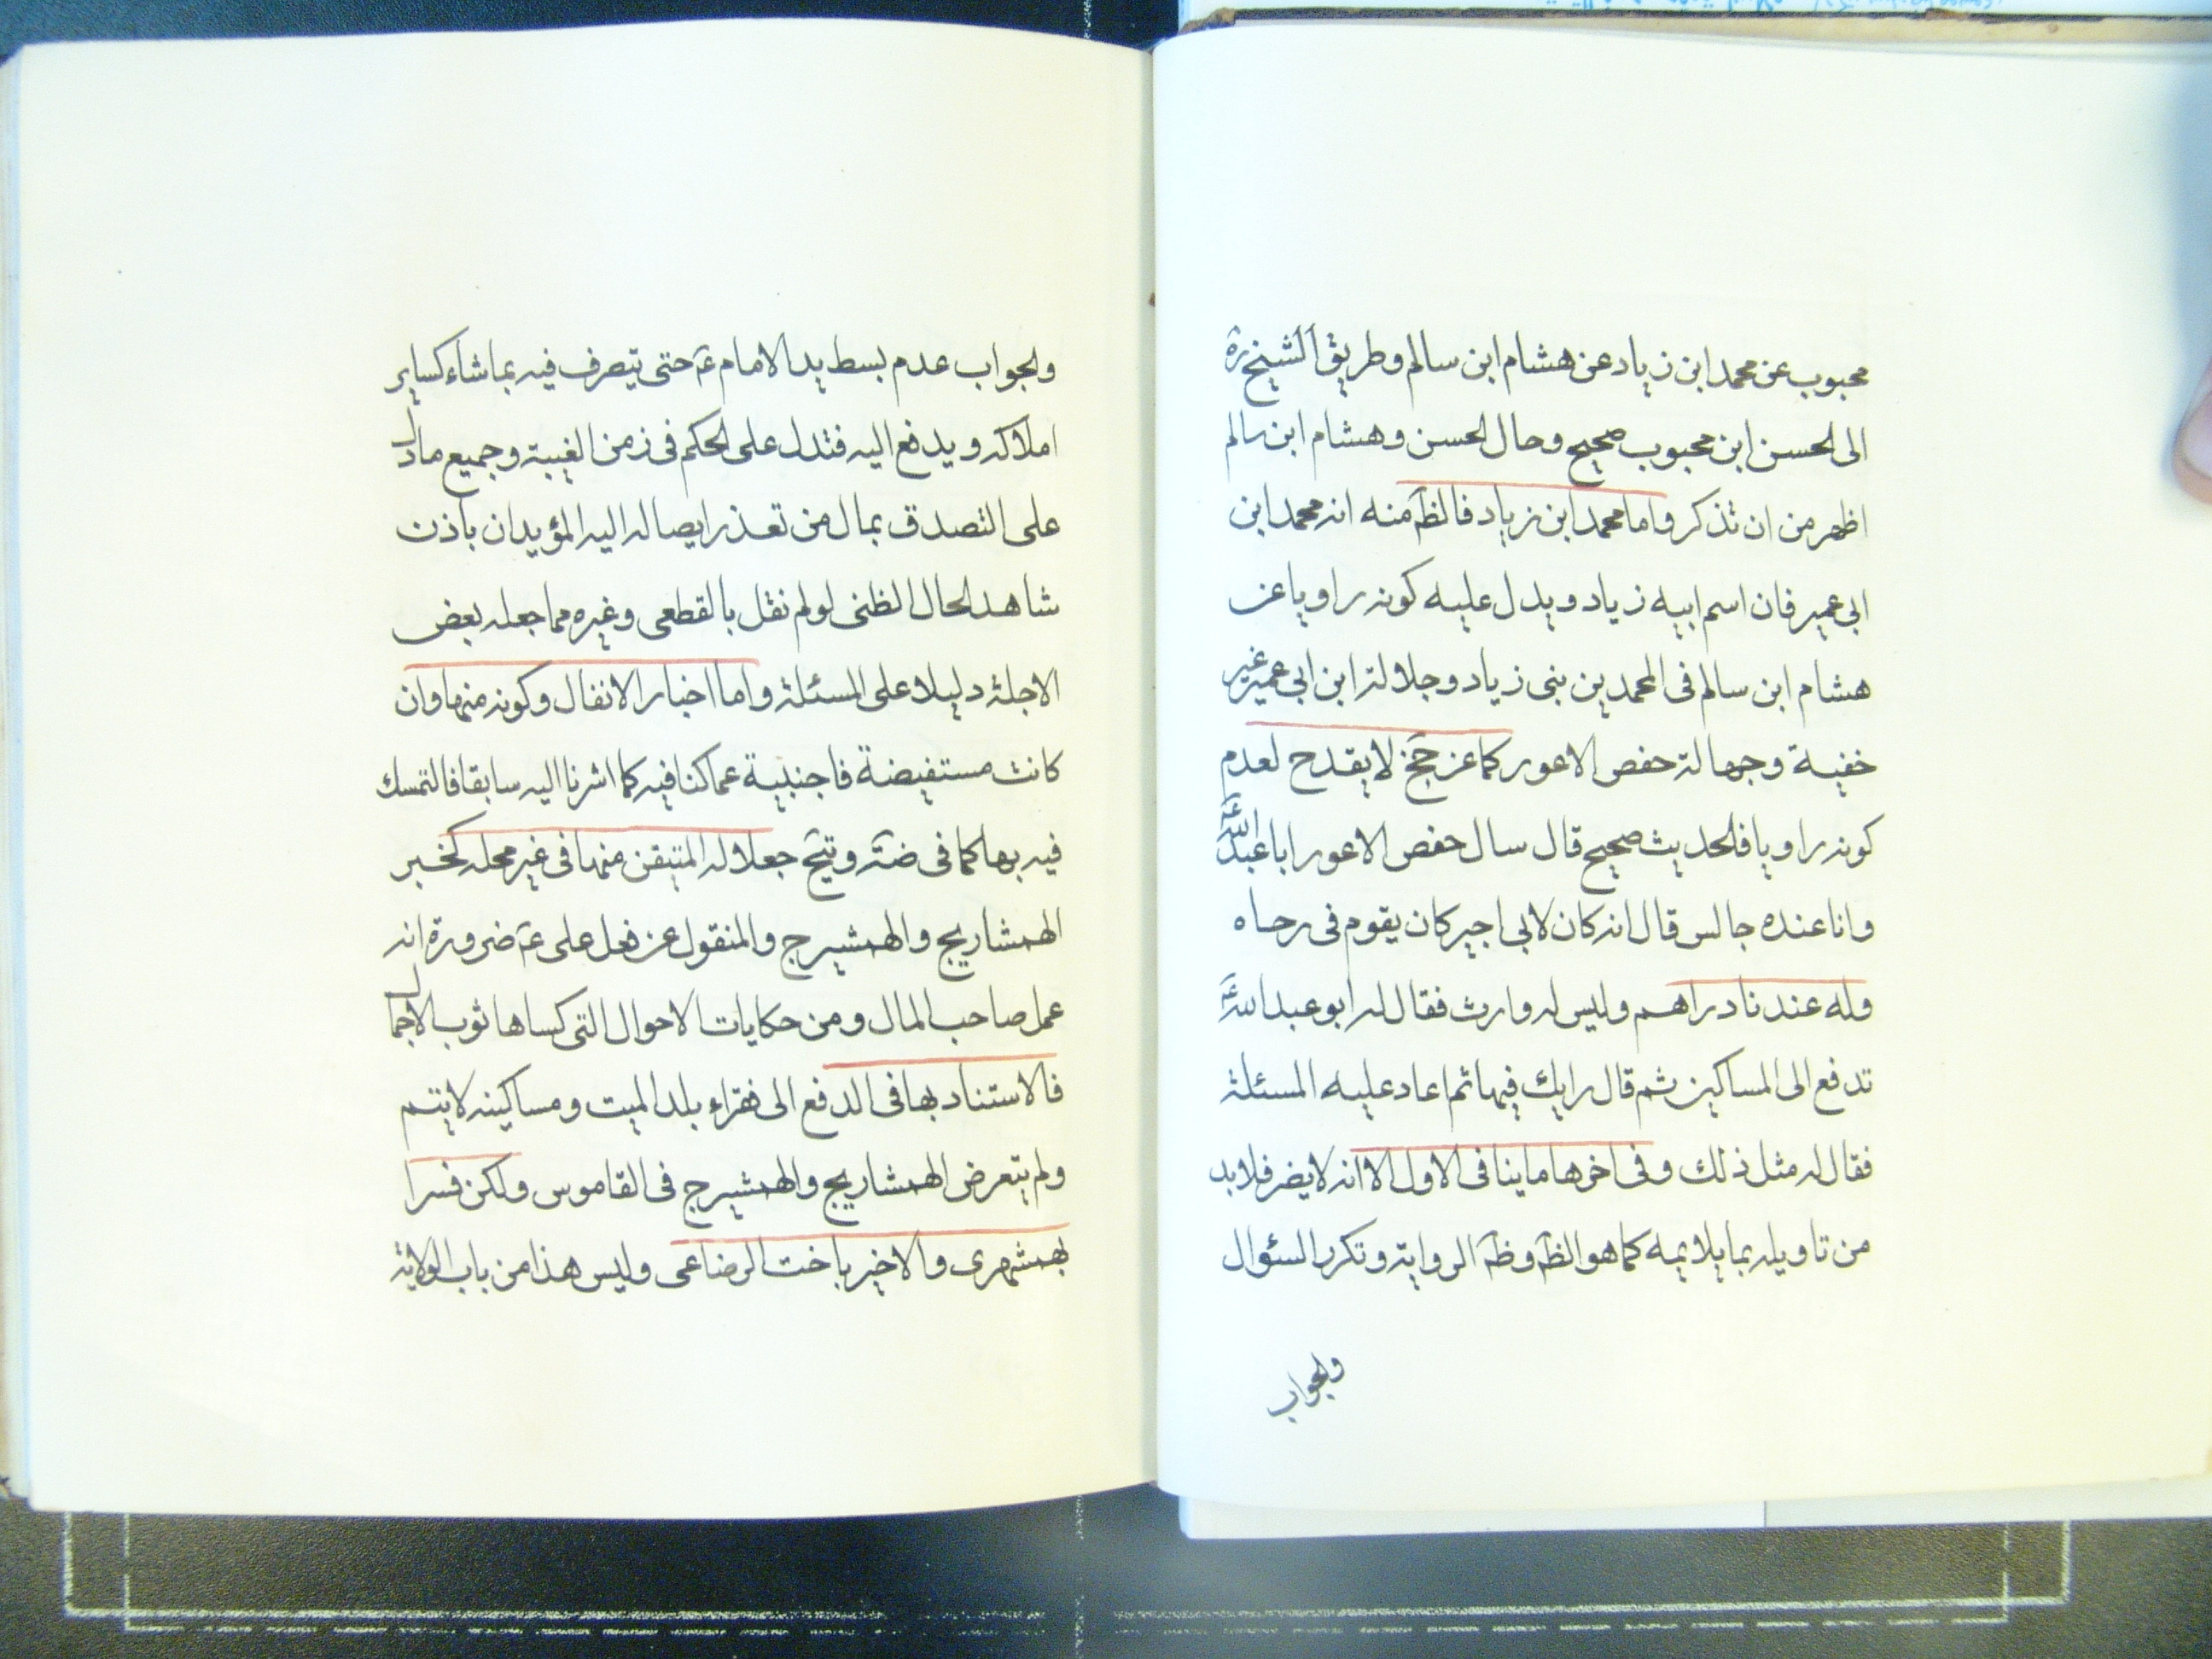 محبوب عن محمد ابن زياد عن هشام ابن سالم وطريق الشيخ ره
الى الحسن ابن محبوب صحيح وحال الحسن وهشام ابن سالم
اظهر من ان تذكر واما محمد ابن زياد فالظ منه انه محمد ابن
ابي عمير فان اسم ابيه زياد ويدل عليه كونه راويا عن
هشام ابن سالم في المحمدين بني زياد وجلالة ابن ابي عمير غير
خفية وجهالة حفص الاعور كما عن حج لا يقدح لعدم
كونه راويا فالحديث صحيح قال سال حفص الاعور ابا عبد الله ع
وانا عنده جالس قال انه كان لابي اجير كان يقوم في رحاه
وله عندنا دراهم وليس له وارث فقال له ابو عبد الله ع
تدفع الى المساكين ثم قال رايك فيها ثم اعاد عليه المسئلة
فقال له مثل ذلك وفي اخرها ما ينافي الاول الا انه لا يضر فلا بد
من تاويله بما يلايمه كما هو الظ وظ الرواية وتكرر السئوال
والجواب
والجواب عدم بسط يد الامام ع حتى يتصرف فيه بما شاء كساير
املاكه ويدفع اليه فتدل على الحكم في زمن الغيبة وجميع ما دل
على التصدق بمال من تعذر ايصاله اليه المؤيدان باذن
شاهد الحال الظني لو لم نقل بالقطعي وغيره مما جعله بعض
الاجلة دليلا على المسئلة واما اخبار الانفال وكونه منها وان
كانت مستفيضة فاجنبية عما كنا فيه كما اشرنا اليه سابقا فالتمسك
فيه بها كما في ضة وتيح جعلا وله المتيقن منها في غير محله كخبر
الهمشاريج والهمشيرج والمنقول عن فعل على ع ضرورة انه
عمل صاحب المال ومن حكايات الاحوال التى كساها ثوب الاجمال
فالاستناد بها في الدفع الى فقراء بلد الميت ومساكينه لا يتم
ولم يتعرض الهمشاريج والهمشيرج في القاموس ولكن فسرا
بهمشهرى والاخير باخت الرضاعى وليس هذا من باب الولاية